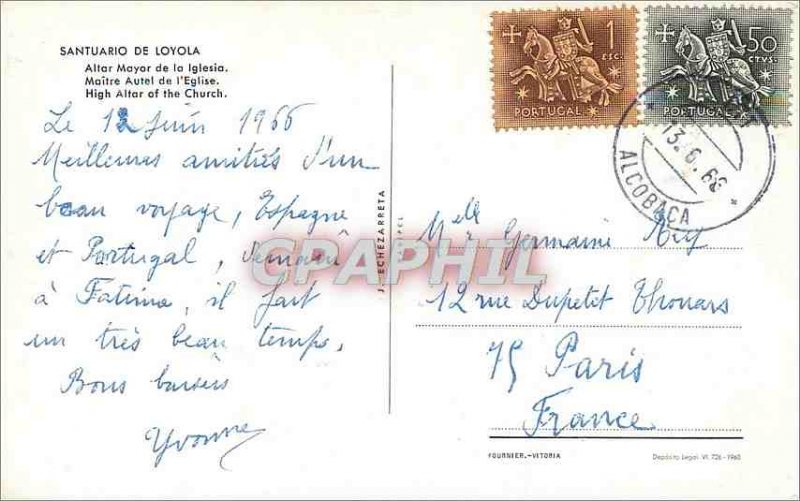 SANTUARIO DE LOYOLA
Altar Mayor de la Iglesia.
Maître Autel de l'Eglise.
High Altar of the Church.
Le 12 juin 1966
Meilleures amitiés d'un
beau voyage, Espagne
et Portugal, demain
à Fatima, il fait
un très beau temps.
Bons baisers
Yvonne
J. ECHEZARRETA
CPAPHIL
1
ESC.
PORTUGAL
50
CTVS.
PORTUGAL
13.6.66
ALCOBAÇA
Melle Germaine
12 rue Dupetit Thouars
75 Paris
France
FOURNIER.-VITORIA
Depósito Legal VI. 726-1960